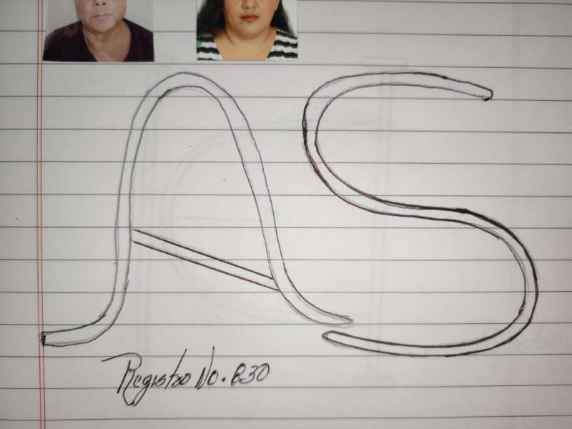 AS
Registro No. 230